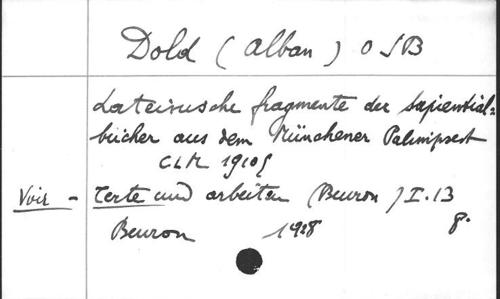 Dold (Alban) OSB
Lateinische fragmente der Sapiential=
bücher aus dem Münchener Palimpsest
CLM 19105
Voir - Texte und arbeiten (Beuron) I. 13
Beuron 1928 8.